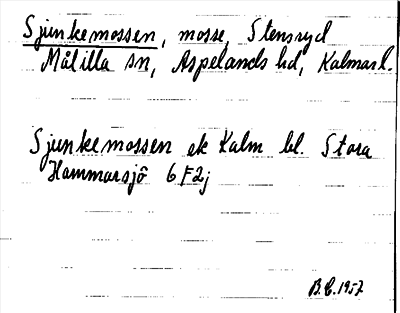 Sjunkemossen, mosse, Stensryd
Målilla sn, Aspelands hd, Kalmar l.
Sjunkemossen ek Kalm bl. Stora
Hammarsjö 6F2j
B.E. 1957